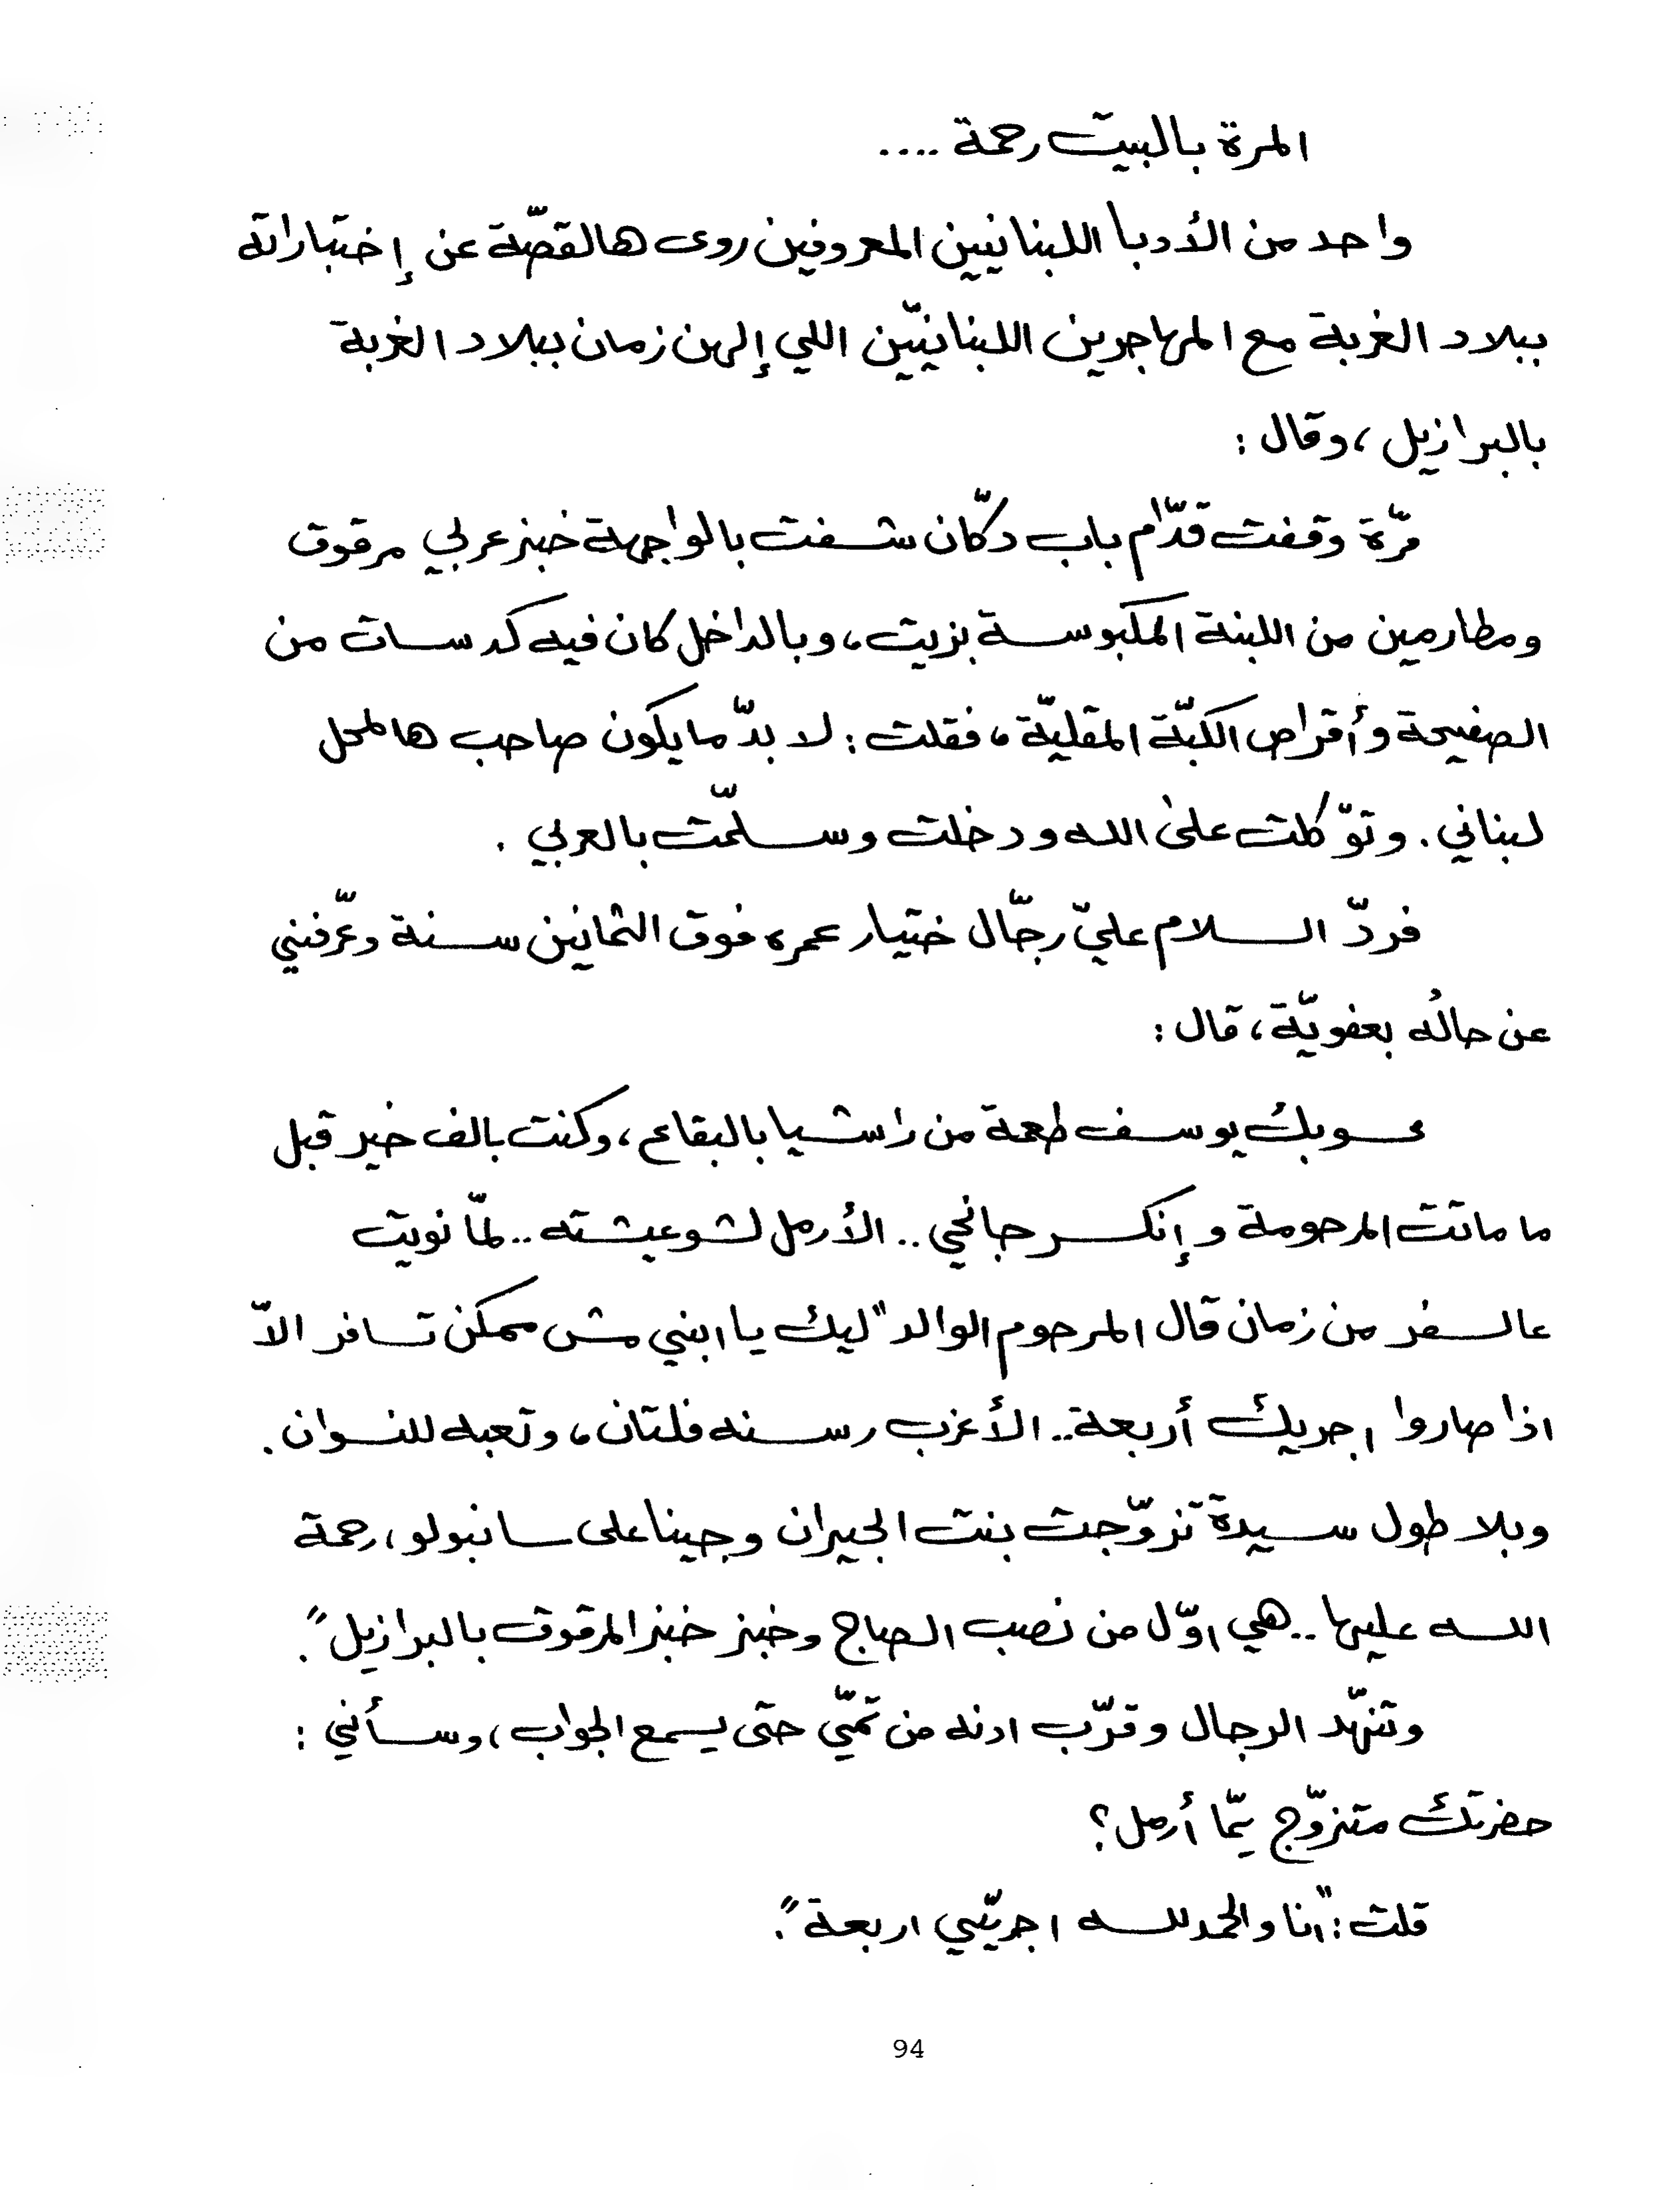 المرة بالبيت رحمة ....
واحد من الأدبا اللبنانيين المعروفين روى هالقصّة عن إختباراته
ببلاد الغربة مع المهاجرين اللبنانيّين اللي إلهن زمان ببلاد الغربة
بالبرازيل ، وقال :
مرّة وقفت قدّام باب دكّان شفت بالواجهة خبز عربي مرقوق
ومطارمين من اللبنة المكبوسة بزيت ، وبالداخل كان فيه كدسات من
الصفيحة وأقراص الكبّة المقليّة ، فقلت : لا بدّ ما يكون صاحب هالمحل
لبناني . وتوّكلت على الله ودخلت وسلّمت بالعربي .
فردّ السلام عليّ رجّال ختيار عمره فوق الثمانين سنة وعّرفني
عن حالُه بعفويّة ، قال :
محسوبك يوسف طعمة من راشيا بالبقاع ، وكنت بالف خير قبل
ما ماتت المرحومة وإنكسر جانحي .. الأرمل لشو عيشته .. لمّا نويت
عالسفر من زمان قال المرحوم الوالد "ليك يا ابني مش ممكن تسافر الاّ
اذا صاروا اجريك أربعة .. الأعزب رسنه فلتان ، وتعبه للنسوان .
وبلا طول سيرة تزوّجت بنت الجيران وجينا على سانبولو ، رحمة
الله عليها .. هي اوّل من نصب الصاج وخبز خبز المرقوق بالبرازيل ".
وتنهّد الرجال وقرّب ادنه من تمّي حتى يسمع الجواب ، وسألني :
حضرتك متزوّج يمّا أرمل ؟
قلت : "انا والحمدلله اجريّيي اربعة ".
94